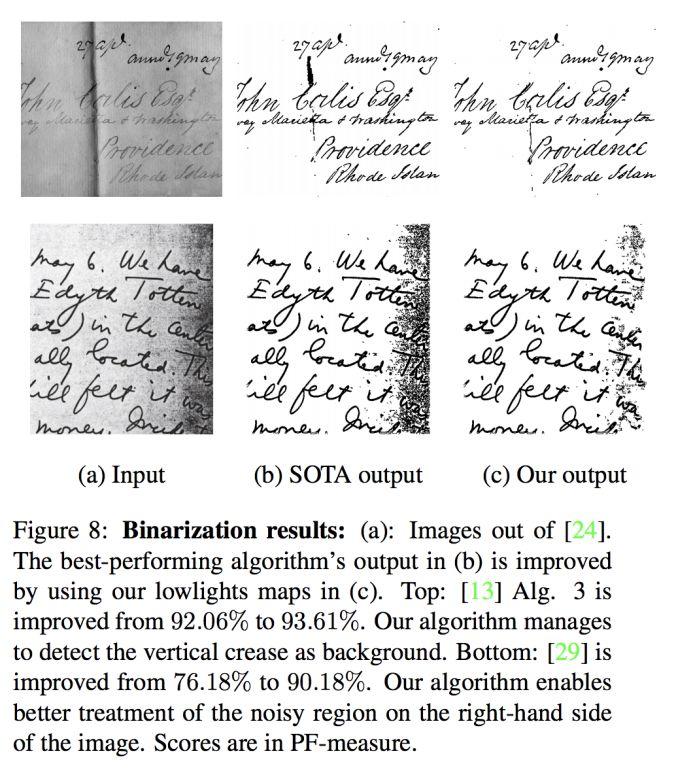 27 apl. 27 apl. 27 apl.
annd 19 may annd 19 may annd 19 may
John Carlis Esqr. John Carlis Esqr. John Carlis Esqr.
vey Marietta & Washington vey Marietta & Washington vey Marietta & Washington
Providence Providence Providence
Rhode Islan Rhode Islan Rhode Islan
may 6. We have may 6. We have may 6. We have
Edyth Totten Edyth Totten Edyth Totten
ats) in the center ats) in the center ats) in the center
ally located. The ally located. The ally located. The
ill felt it was ill felt it was ill felt it was
money. money. money.
(a) Input (b) SOTA output (c) Our output
Figure 8: Binarization results: (a): Images out of [24].
The best-performing algorithm's output in (b) is improved
by using our lowlights maps in (c). Top: [13] Alg. 3 is
improved from 92.06% to 93.61%. Our algorithm manages
to detect the vertical crease as background. Bottom: [29] is
improved from 76.18% to 90.18%. Our algorithm enables
better treatment of the noisy region on the right-hand side
of the image. Scores are in PF-measure.